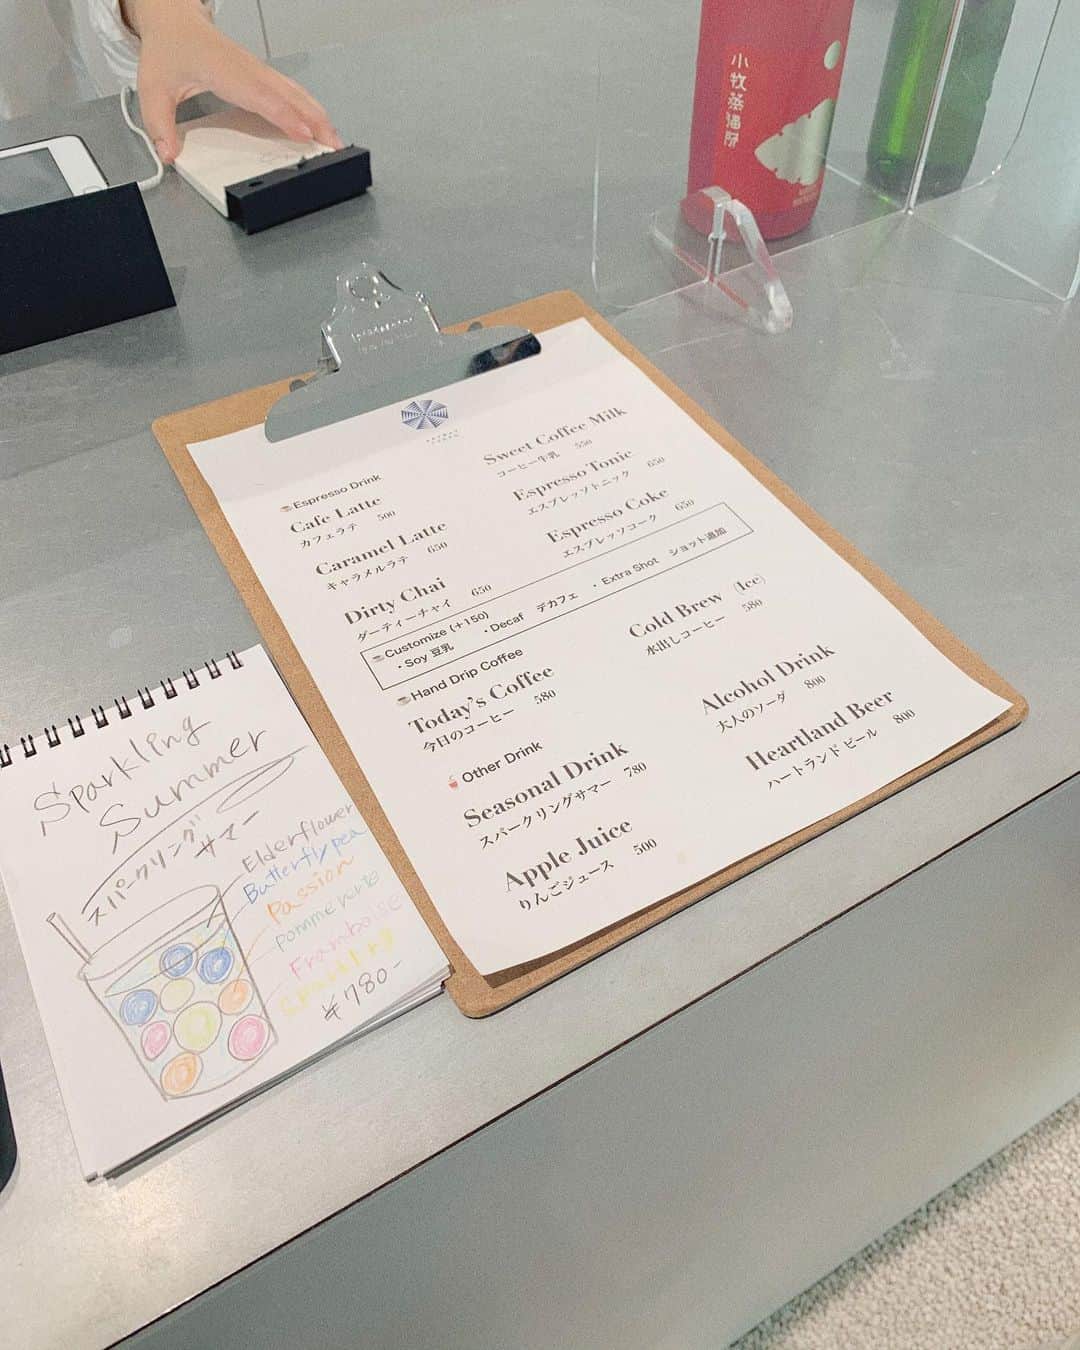 小牧蒸溜所
☕Espresso Drink
Cafe Latte
カフェラテ 500
Caramel Latte
キャラメルラテ 650
Dirty Chai
ダーティーチャイ 650
Sweet Coffee Milk
コーヒー牛乳 550
Espresso Tonic
エスプレッソトニック 650
Espresso Coke
エスプレッソコーク 650
☕Customize (+150)
・Soy 豆乳 ・Decaf デカフェ ・Extra Shot ショット追加
☕Hand Drip Coffee
Today's Coffee
今日のコーヒー 580
Cold Brew (Ice)
水出しコーヒー 580
Other Drink
Seasonal Drink
スパークリングサマー 780
Apple Juice
りんごジュース 500
Alcohol Drink
大人のソーダ 800
Heartland Beer
ハートランド ビール 800
Sparkling
Summer
スパークリング
サマー
Elderflower
Butterfly pea
Passion
Framboise
¥780-